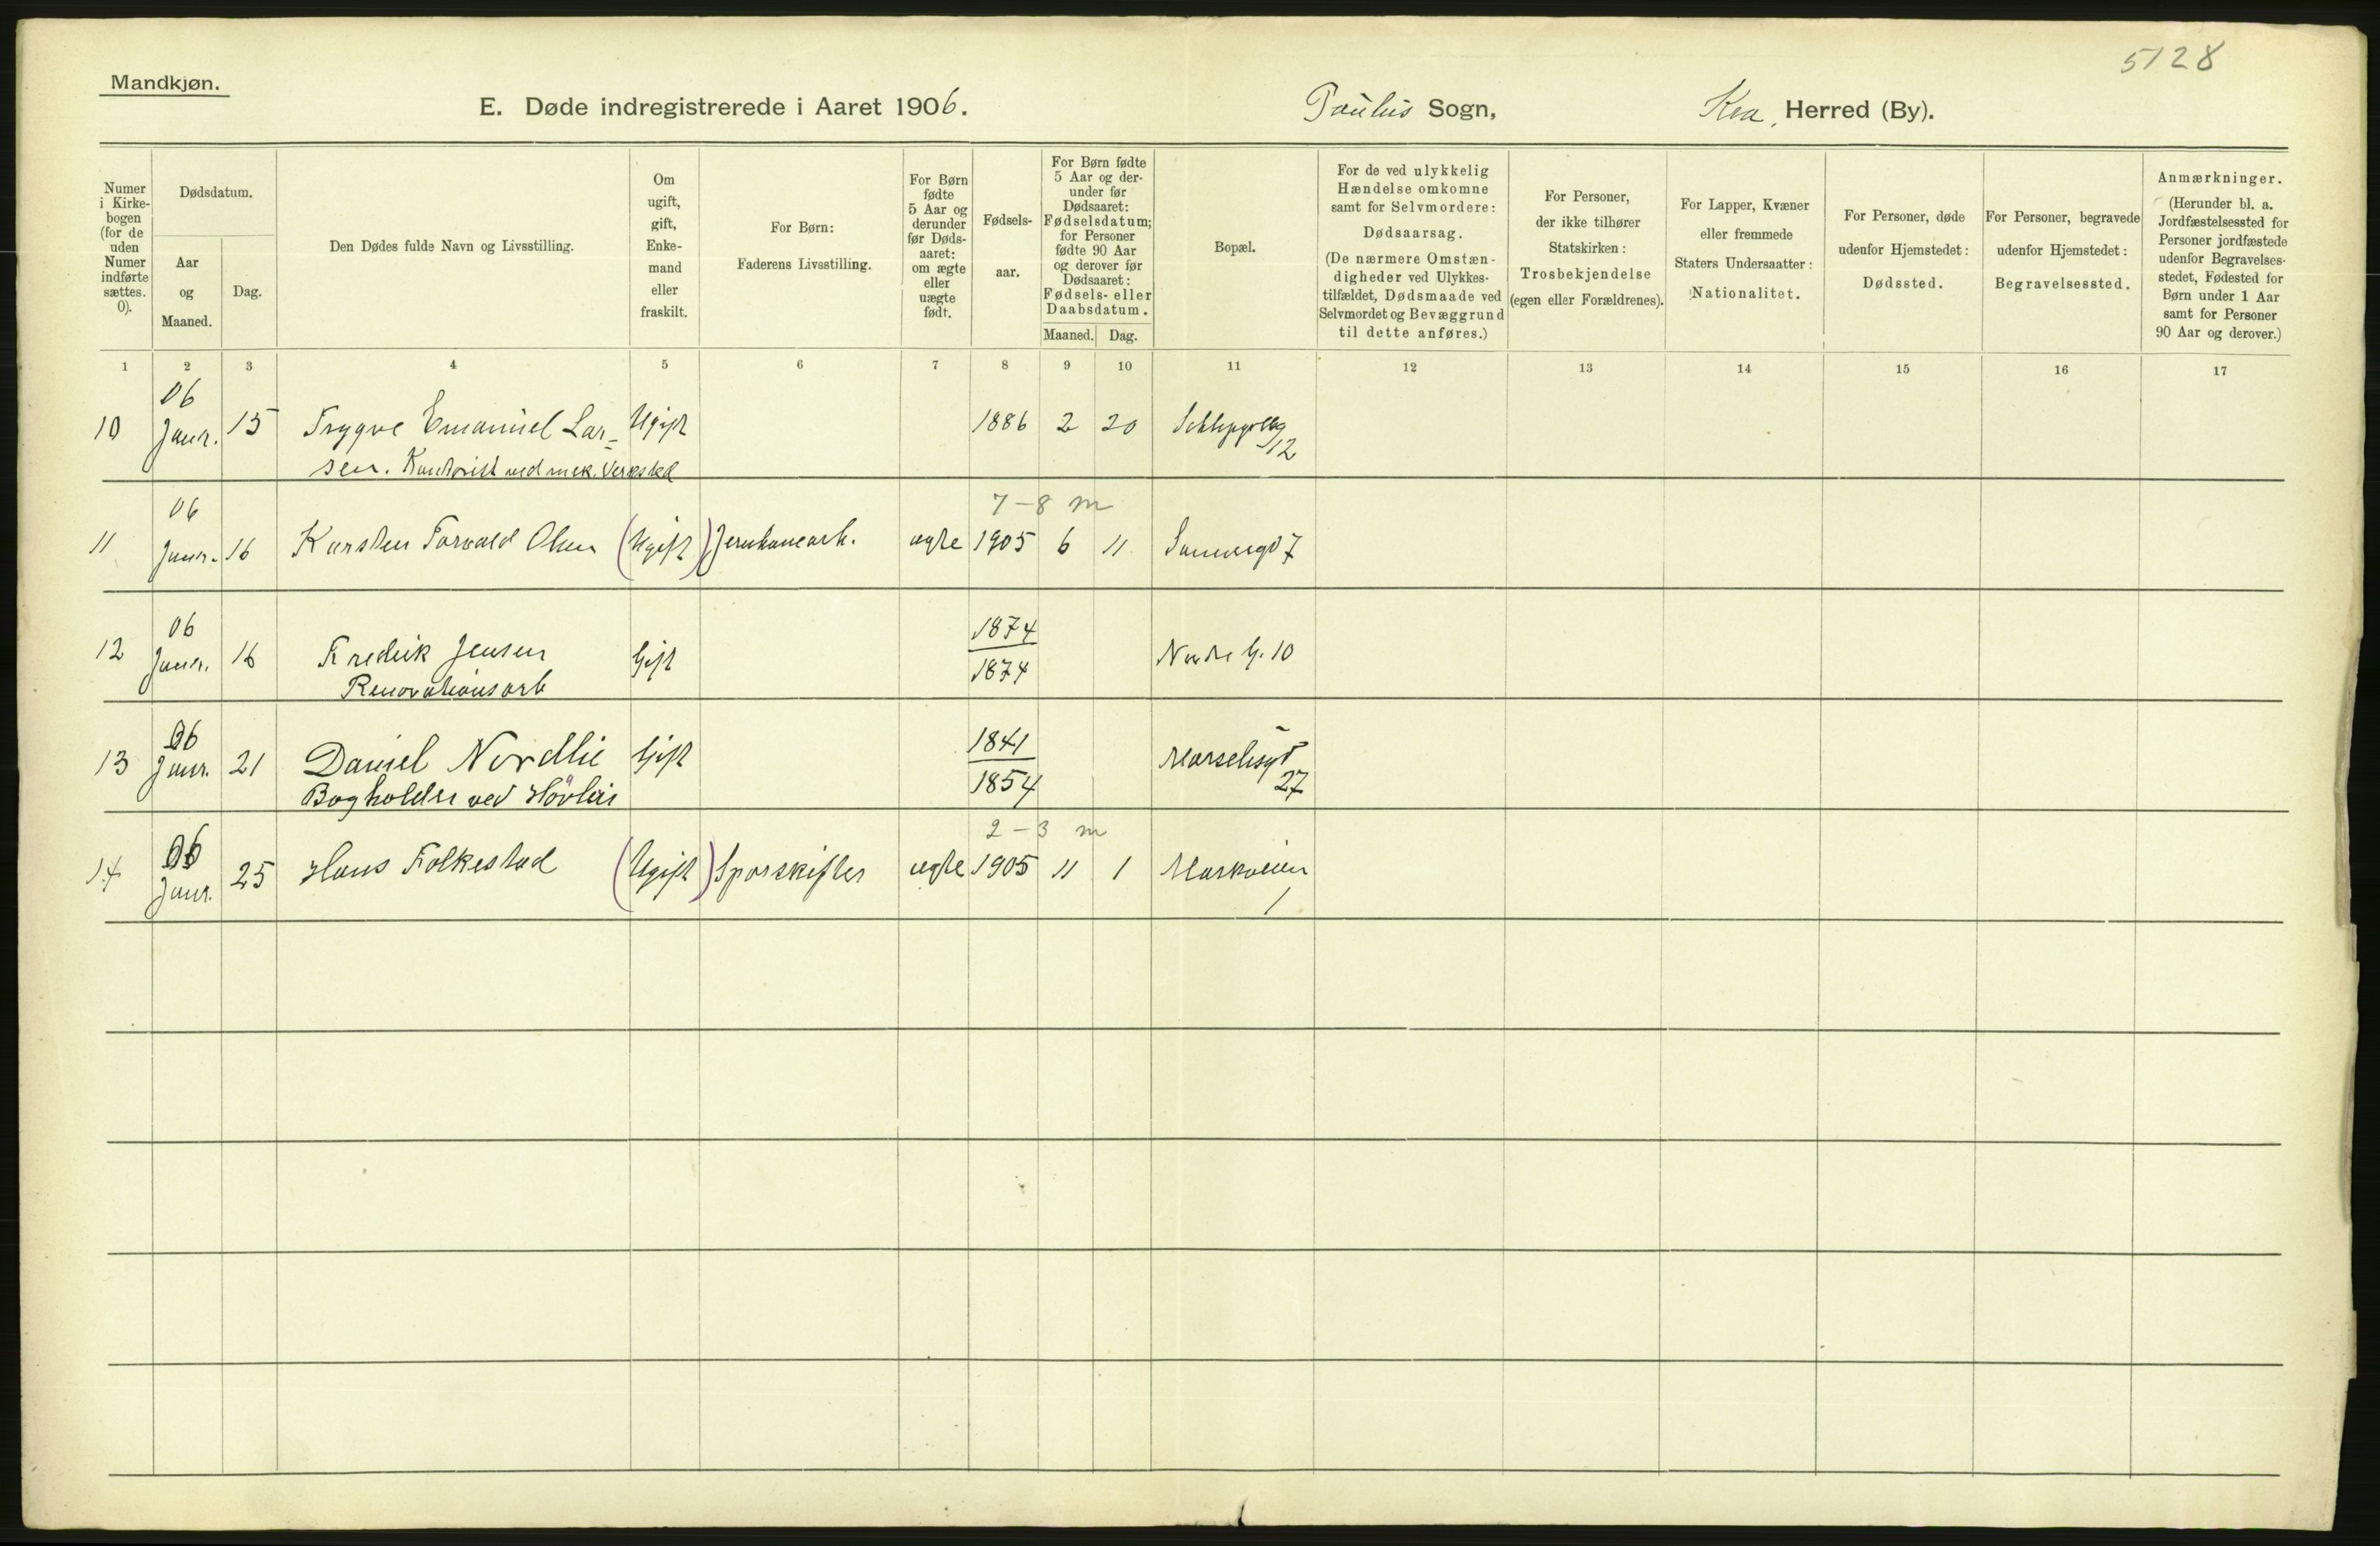 5128
Mandkjøn.
E. Døde indregistrerede i Aaret 1906.
Paulus Sogn,
Kra, Herred (By).
Numer
i Kirke-
bogen
(for de
uden
Numer
indførte
sættes.
0).
Dødsdatum.
Aar
og
Maaned.
Dag.
Den Dødes fulde Navn og Livsstilling.
Om
ugift,
gift,
Enke-
mand
eller
fraskilt.
For Børn:
Faderens Livsstilling.
For Børn
fødte
5 Aar og
derunder
før Døds-
aaret:
om ægte
eller
uægte
født.
Fødsels-
aar.
For Børn fødte
5 Aar og der-
under før
Dødsaaret:
Fødselsdatum;
for Personer
fødte 90 Aar
og derover før
Dødsaaret:
Fødsels- eller
Daabsdatum.
Maaned. Dag.
Bopæl.
For de ved ulykkelig
Hændelse omkomne
samt for Selvmordere:
Dødsaarsag.
(De nærmere Omstæn-
digheder ved Ulykkes-
tilfældet, Dødsmaade ved
Selvmordet og Bevæggrund
til dette anføres.)
For Personer,
der ikke tilhører
Statskirken:
Trosbekjendelse
(egen eller Forældrenes).
For Lapper, Kvæner
eller fremmede
Staters Undersaatter:
Nationalitet.
For Personer, døde
udenfor Hjemstedet:
Dødssted.
For Personer, begravede
udenfor Hjemstedet:
Begravelsessted.
Anmærkninger.
(Herunder bl. a.
Jordfæstelsessted for
Personer jordfæstede
udenfor Begravelses-
stedet, Fødested for
Børn under 1 Aar
samt for Personer
90 Aar og derover.)
1 2 3 4 5 6 7 8 9 10 11 12 13 14 15 16 17
06
10 Janr. 15 Trygve Emanuel Lar- Ugift 1886 2 20
sen. Kontorist ved mek. Verksted 12
06 7-8 m
11 Janr. 16 Karsten Torvald Olsen (Ugift) Jernbanearb. ægte 1905 6 11 Sannergd 7
06 1874
12 Janr. 16 Fredrik Jensen Gift 1874 Nordre G. 10
Renovationsarb
06 1841
13 Janr. 21 Daniel Nordlie Gift Marselisgt
Bogholder ved 1854 27
06 2-3 m
14 Janr. 25 Hans Folkestad (Ugift) Sporskifter ægte 1905 11 1 Markveien
1